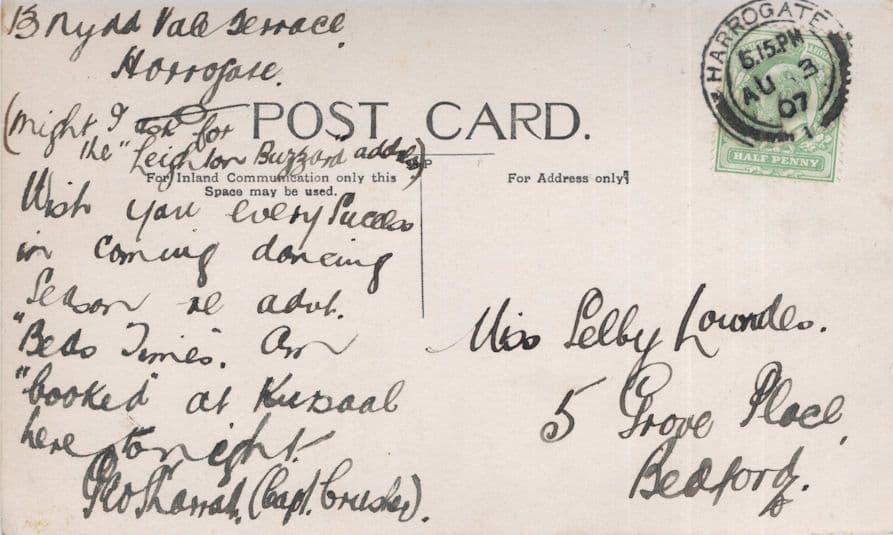 13 Nydd Vale Terrace,
Harrogate.
(Might I ask for
the "Leighton Buzzard" address)
POST CARD.
For Inland Communication only this
Space may be used.
For Address only
Wish you every success
in coming dancing
Season re advt.
"Beds Times". Am
"booked" at Kursaal
here tonight.
Geo (Capt. Crusher).
Miss Selby Lowndes.
5 Grove Place,
Bedford.
HARROGATE
6.15.PM
AU 3
07
HALF PENNY